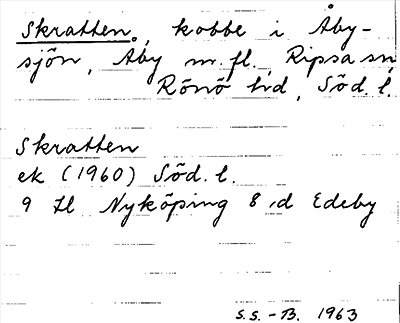 Skratten, kobbe i Åby-
sjön, Åby m. fl., Ripsa sn,
Rönö hd, Söd. l.
Skratten
ek (1960) Söd. l.
9 H Nyköping 8 d Edeby
S.S. - B. 1963